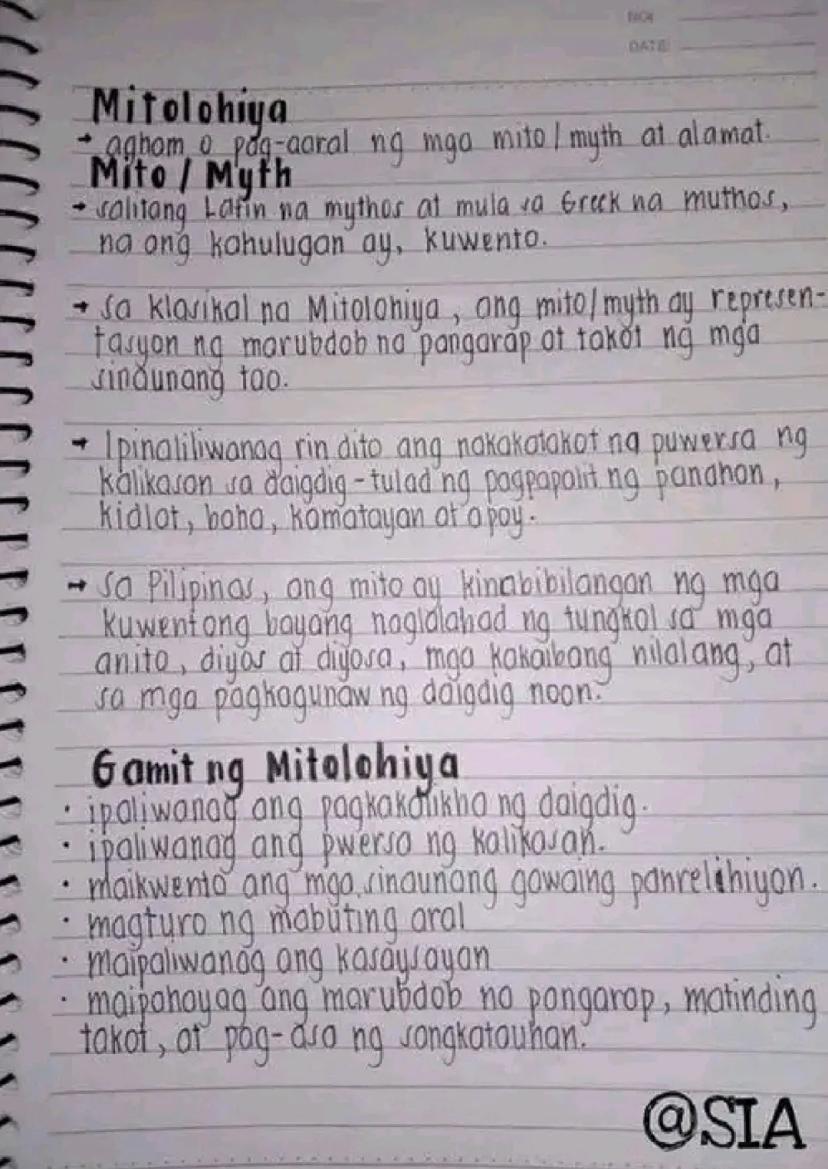 NO:
DATE:
Mitolohiya
→ agham o pag-aaral ng mga mito/myth at alamat.
Mito / Myth
→ salitang Latin na mythos at mula sa Greek na muthos,
na ang kahulugan ay, kuwento.
→ sa klasikal na Mitolohiya, ang mito/myth ay represen-
tasyon ng marubdob na pangarap at takot ng mga
sinaunang tao.
→ Ipinaliliwanag rin dito ang nakakatakot na puwersa ng
kalikasan sa daigdig - tulad ng pagpapalit ng panahon,
kidlat, baha, kamatayan at apoy.
→ sa Pilipinas, ang mito ay kinabibilangan ng mga
kuwentong bayang naglalahad ng tungkol sa mga
anito, diyos at diyosa, mga kakaibang nilalang, at
sa mga pagkagunaw ng daigdig noon.
Gamit ng Mitolohiya
· ipaliwanag ang pagkakalikha ng daigdig.
· ipaliwanag ang pwersa ng kalikasan.
· maikwento ang mga sinaunang gawaing panrelihiyon.
· magturo ng mabuting aral
· maipaliwanag ang kasaysayan
· maipahayag ang marubdob na pangarap, matinding
takot, at pag-asa ng sangkatauhan.
@SIA